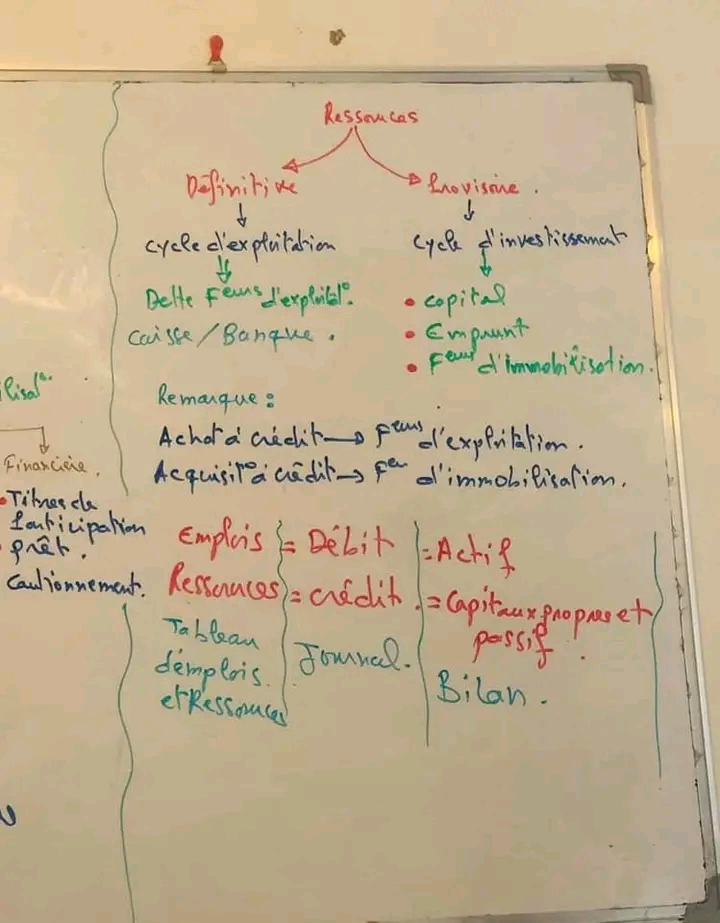 Ressources
Définitive
Provisoire.
cycle d'exploitation
cycle d'investissement
Dette Feurs d'exploitato.
caisse/Banque.
• capital
• Emprunt
• Feur d'immobilisation.
Remarque:
Achat à crédit → Feurs d'exploitation.
Acquisito à crédit → Feur d'immobilisation.
Financière.
• Titres de
participation
• prêt.
cautionnement.
Emplois = Débit = Actif
Ressources = crédit. = Capitaux propres et
passif.
Tableau
d'emplois
et Ressources
Journal.
Bilan.